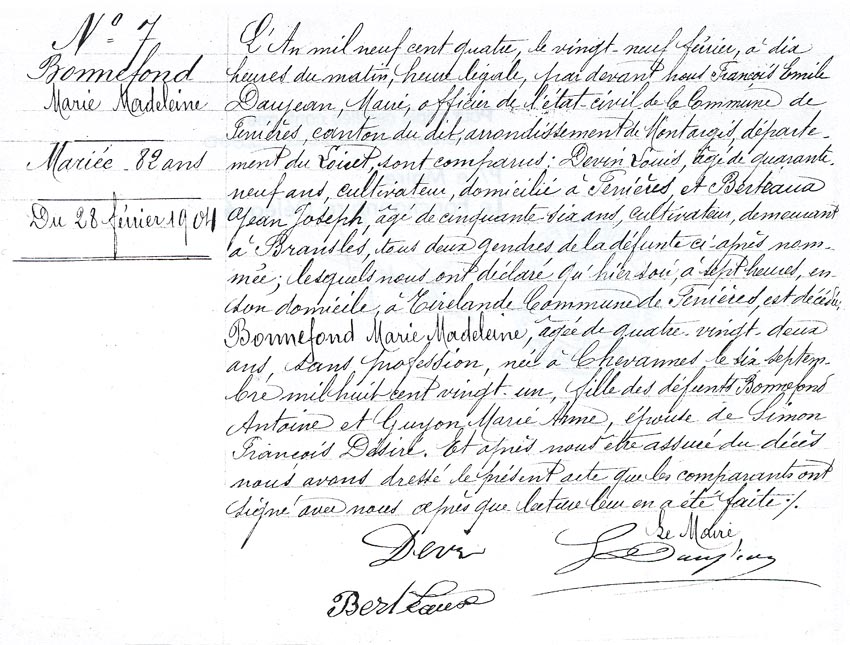 N° 7
Bonnefond
Marie Madeleine
Mariée - 82 ans
Du 28 février 1904
L'An mil neuf cent quatre, le vingt-neuf février, à dix
heures du matin, heure légale, par devant nous François Emile
Daujean, Maire, officier de l'état-civil de la Commune de
Ferrières, canton du dit, arrondissement de Montargis, départe-
ment du Loiret, sont comparus : Devin Louis, âgé de quarante-
neuf ans, cultivateur, domicilié à Ferrières, et Berteaux
Jean Joseph, âgé de cinquante-six ans, cultivateur, demeurant
à Bransles, tous deux gendres de la défunte ci-après nom-
mée ; lesquels nous ont déclaré qu'hier soir, à sept heures, en
son domicile, à Tirelande Commune de Ferrières, est décédée,
Bonnefond Marie Madeleine, âgée de quatre-vingt-deux
ans, sans profession, née à Chevannes le six septem-
bre mil huit cent vingt-un, fille des défunts Bonnefond
Antoine et Guyon Marie Anne, épouse de Simon
François Désiré. Et après nous être assuré du décès
nous avons dressé le présent acte que les comparants ont
signé avec nous après que lecture leur en a été faite ./.
Le Maire
Devin
Daujean
Berteaux